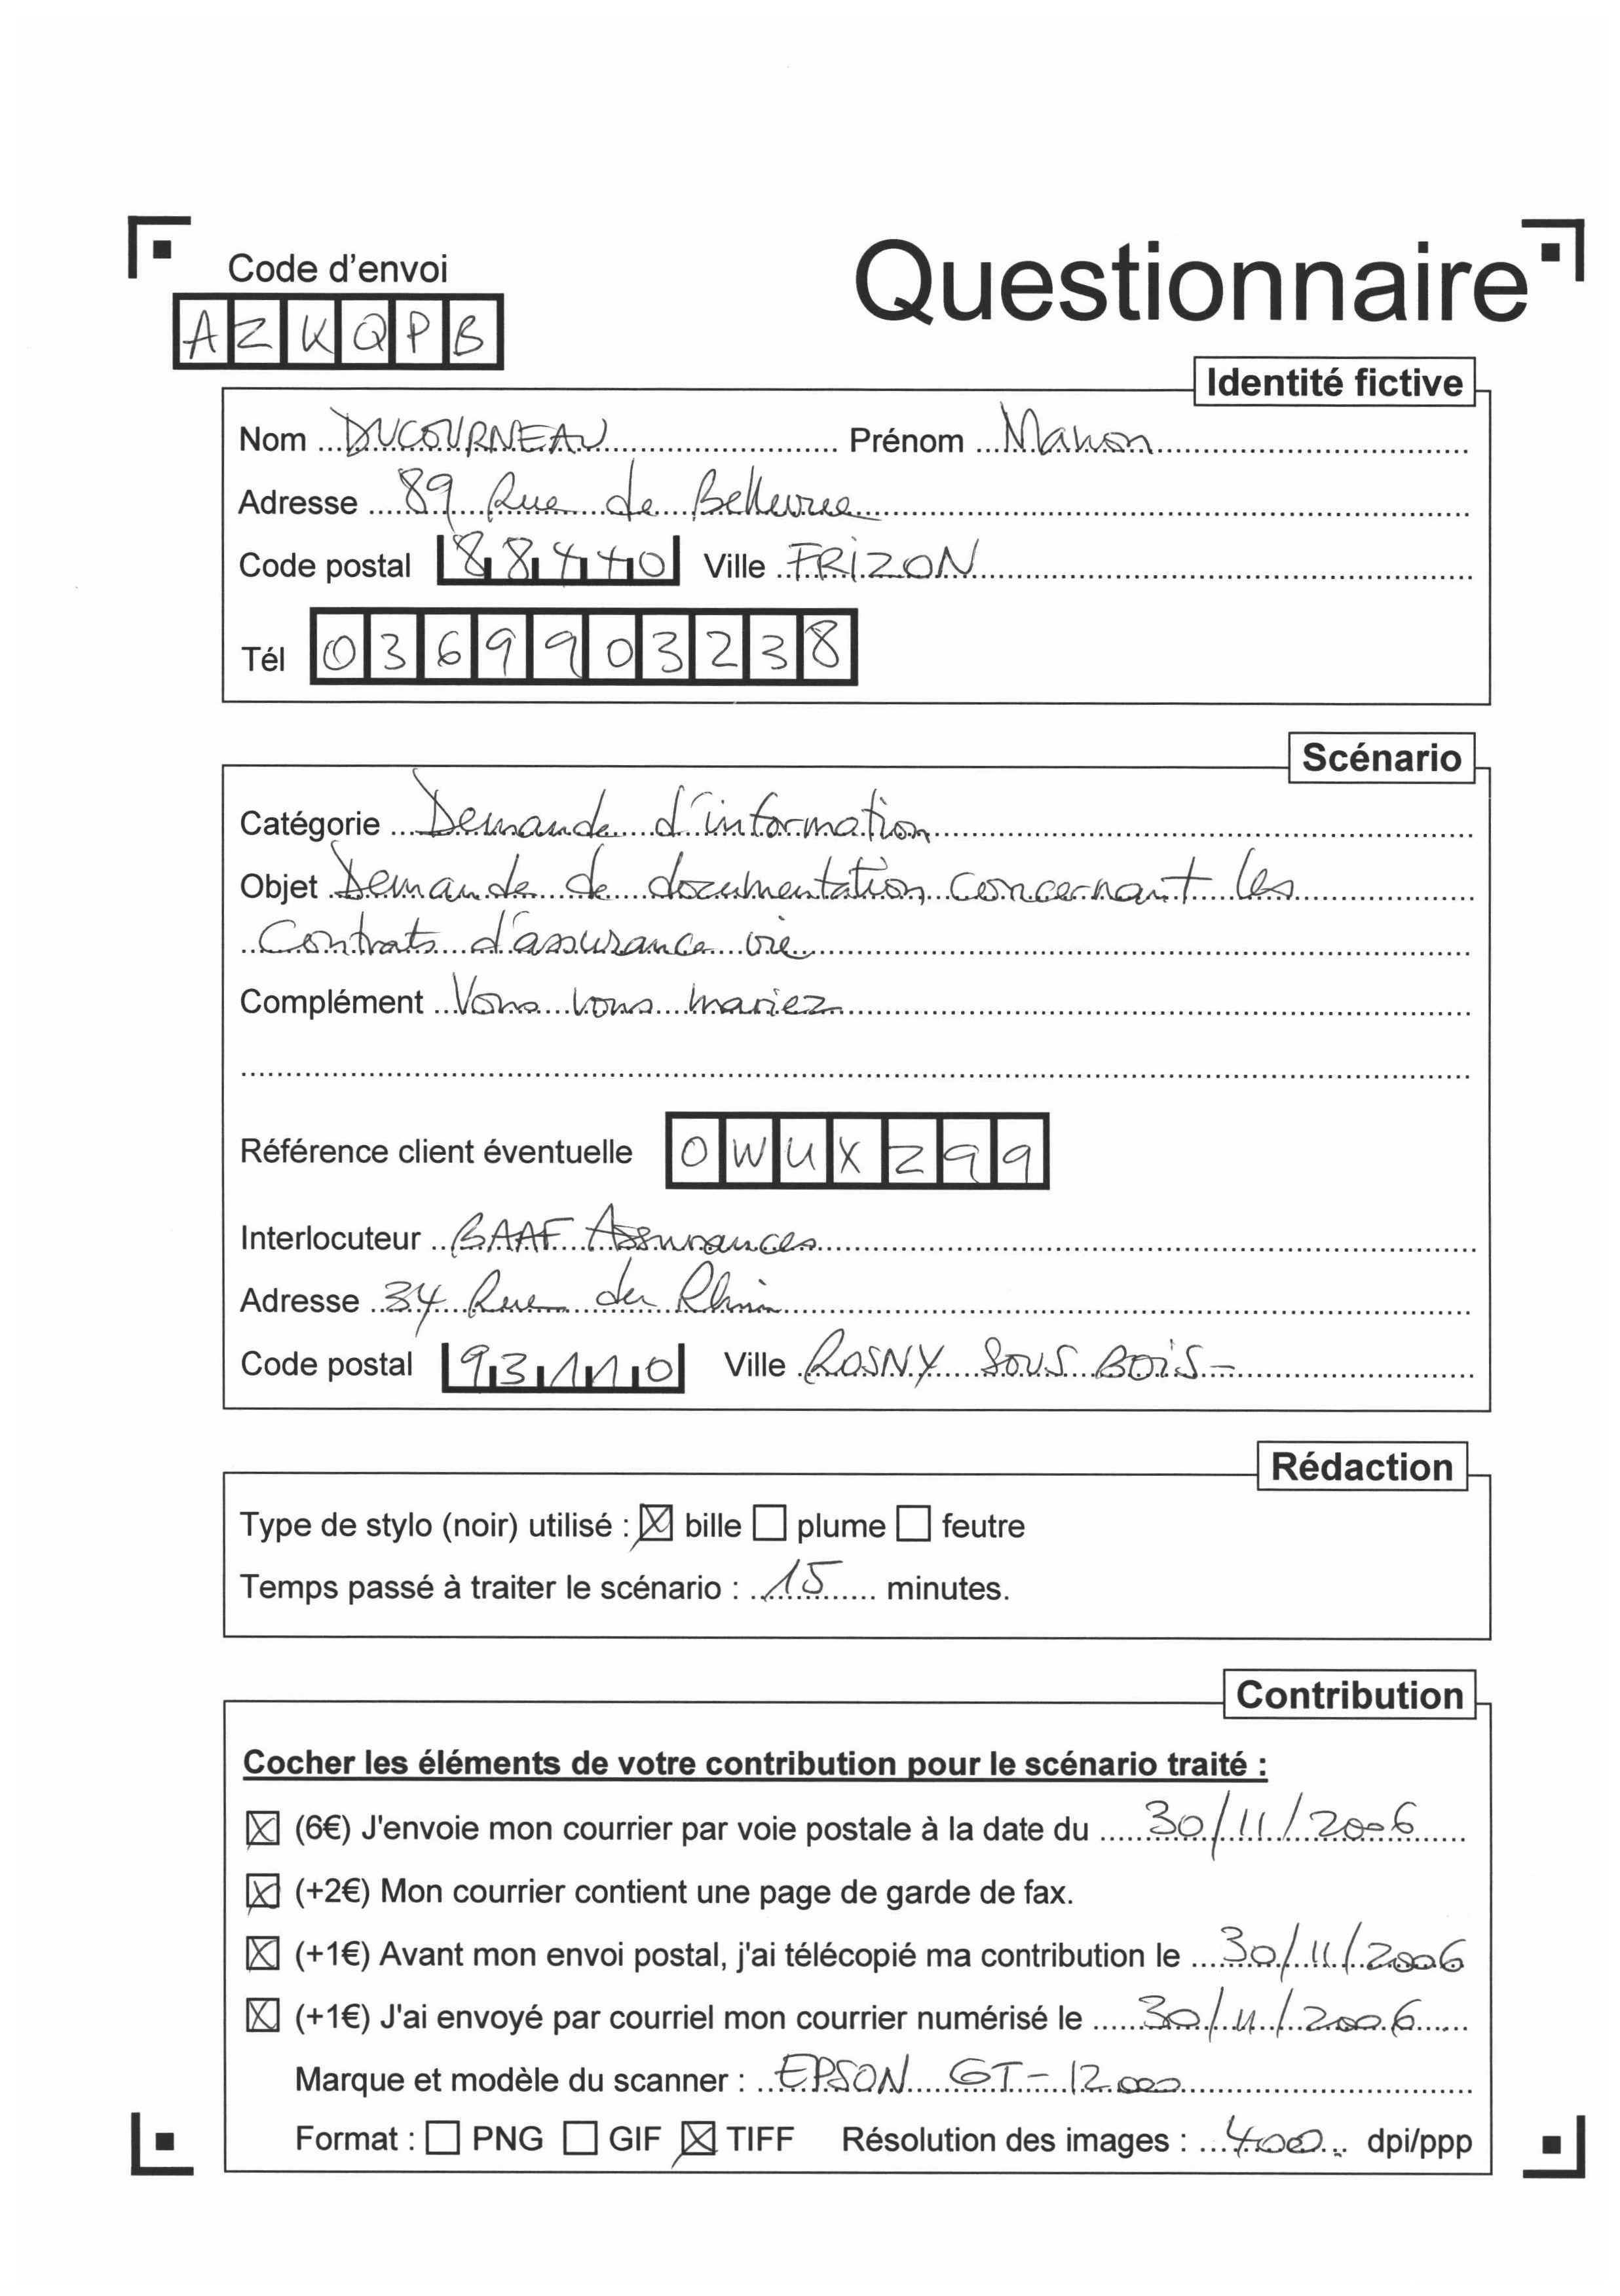 Code d'envoi
Questionnaire
AZKQPB
Identité fictive
Nom DUCOURNEAU Prénom Manon
Adresse 89 Rue de Bellevue
Code postal 88440 Ville FRIZON
Tél 0369903238
Scénario
Catégorie Demande d'information
Objet Demande de documentation concernant les
Contrats d'assurance vie
Complément Vous vous mariez
Référence client éventuelle OWUXZ99
Interlocuteur BAAF Assurances
Adresse 34 Rue du Rhin
Code postal 93110 Ville ROSNY SOUS BOIS-
Rédaction
Type de stylo (noir) utilisé : ☒ bille ☐ plume ☐ feutre
Temps passé à traiter le scénario : 15 minutes.
Contribution
Cocher les éléments de votre contribution pour le scénario traité :
☒ (6€) J'envoie mon courrier par voie postale à la date du 30/11/2006
☒ (+2€) Mon courrier contient une page de garde de fax.
☒ (+1€) Avant mon envoi postal, j'ai télécopié ma contribution le 30/11/2006
☒ (+1€) J'ai envoyé par courriel mon courrier numérisé le 30/11/2006
Marque et modèle du scanner : EPSON GT-12000
Format : ☐ PNG ☐ GIF ☒ TIFF Résolution des images : 400 dpi/ppp